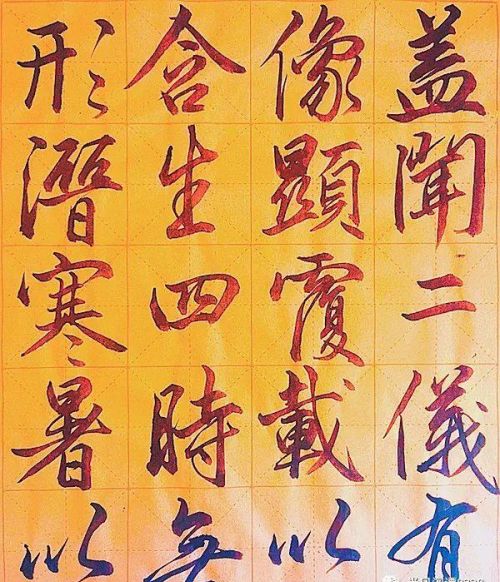 盖聞二儀有
像顯覆載以
含生四時無
形潛寒暑以